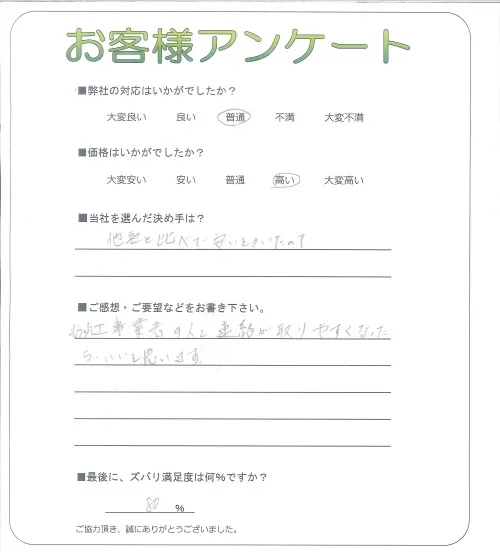 お客様アンケート
■弊社の対応はいかがでしたか？
大変良い 良い 普通 不満 大変不満
■価格はいかがでしたか？
大変安い 安い 普通 高い 大変高い
■当社を選んだ決め手は？
他社と比べて安いときいたので
■ご感想・ご要望などをお書き下さい。
工事業者の人と連絡が取りやすくなった
ら、いいと思います。
■最後に、ズバリ満足度は何%ですか？
80 %
ご協力頂き、誠にありがとうございました。